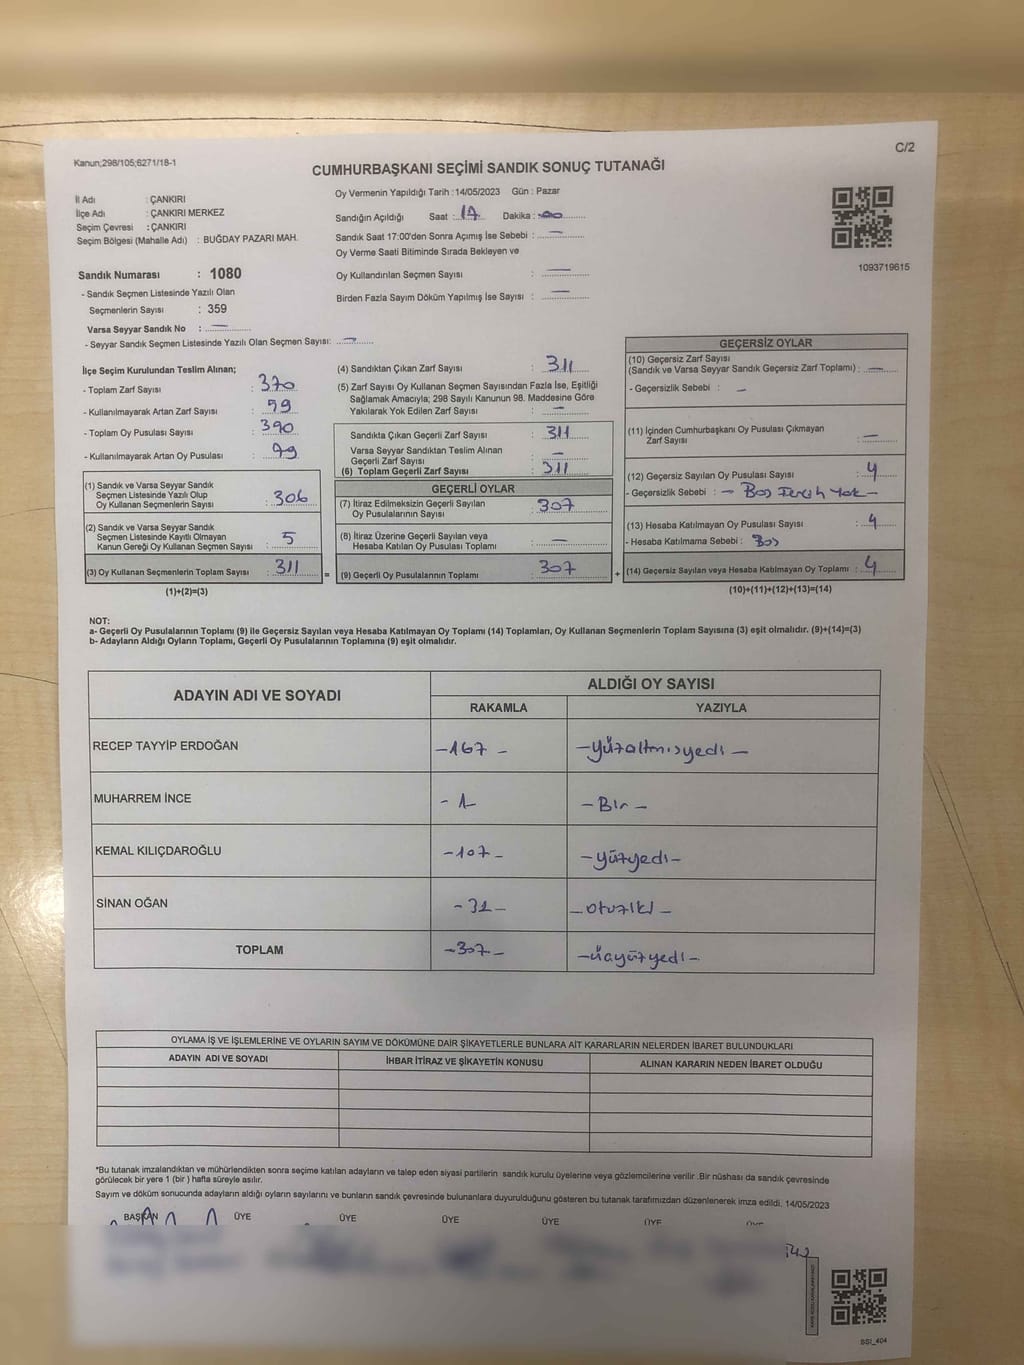 Kanun;298/105;6271/18-1
C/2
CUMHURBAŞKANI SEÇİMİ SANDIK SONUÇ TUTANAĞI
İl Adı : ÇANKIRI
İlçe Adı : ÇANKIRI MERKEZ
Seçim Çevresi : ÇANKIRI
Seçim Bölgesi (Mahalle Adı) : BUĞDAY PAZARI MAH.
Oy Vermenin Yapıldığı Tarih : 14/05/2023 Gün : Pazar
Sandığın Açıldığı Saat : 17 Dakika : 00
Sandık Saat 17:00'den Sonra Açılmış İse Sebebi : —
Oy Verme Saati Bitiminde Sırada Bekleyen ve
Oy Kullandırılan Seçmen Sayısı : —
Birden Fazla Sayım Döküm Yapılmış İse Sayısı : —
1093719615
Sandık Numarası : 1080
- Sandık Seçmen Listesinde Yazılı Olan
Seçmenlerin Sayısı : 359
Varsa Seyyar Sandık No : —
- Seyyar Sandık Seçmen Listesinde Yazılı Olan Seçmen Sayısı: —
İlçe Seçim Kurulundan Teslim Alınan;
- Toplam Zarf Sayısı : 370
- Kullanılmayarak Artan Zarf Sayısı : 59
- Toplam Oy Pusulası Sayısı : 390
- Kullanılmayarak Artan Oy Pusulası : 79
(1) Sandık ve Varsa Seyyar Sandık
Seçmen Listesinde Yazılı Olup
Oy Kullanan Seçmenlerin Sayısı : 306
(2) Sandık ve Varsa Seyyar Sandık
Seçmen Listesinde Kayıtlı Olmayan
Kanun Gereği Oy Kullanan Seçmen Sayısı : 5
(3) Oy Kullanan Seçmenlerin Toplam Sayısı : 311 =
(1)+(2)=(3)
(4) Sandıktan Çıkan Zarf Sayısı : 311
(5) Zarf Sayısı Oy Kullanan Seçmen Sayısından Fazla İse, Eşitliği
Sağlamak Amacıyla; 298 Sayılı Kanunun 98. Maddesine Göre
Yakılarak Yok Edilen Zarf Sayısı : —
Sandıkta Çıkan Geçerli Zarf Sayısı : 311
Varsa Seyyar Sandıktan Teslim Alınan
Geçerli Zarf Sayısı : —
(6) Toplam Geçerli Zarf Sayısı : 311
GEÇERLİ OYLAR
(7) İtiraz Edilmeksizin Geçerli Sayılan
Oy Pusulalarının Sayısı : 307
(8) İtiraz Üzerine Geçerli Sayılan veya
Hesaba Katılan Oy Pusulası Toplamı : —
(9) Geçerli Oy Pusulalarının Toplamı : 307 +
GEÇERSİZ OYLAR
(10) Geçersiz Zarf Sayısı
(Sandık ve Varsa Seyyar Sandık Geçersiz Zarf Toplamı) : —
- Geçersizlik Sebebi : —
(11) İçinden Cumhurbaşkanı Oy Pusulası Çıkmayan
Zarf Sayısı : —
(12) Geçersiz Sayılan Oy Pusulası Sayısı : 4
- Geçersizlik Sebebi : — Boş Tercih Yok —
(13) Hesaba Katılmayan Oy Pusulası Sayısı : 4
- Hesaba Katılmama Sebebi : Boş
(14) Geçersiz Sayılan veya Hesaba Katılmayan Oy Toplamı : 4
(10)+(11)+(12)+(13)=(14)
NOT:
a- Geçerli Oy Pusulalarının Toplamı (9) ile Geçersiz Sayılan veya Hesaba Katılmayan Oy Toplamı (14) Toplamları, Oy Kullanan Seçmenlerin Toplam Sayısına (3) eşit olmalıdır. (9)+(14)=(3)
b- Adayların Aldığı Oyların Toplamı, Geçerli Oy Pusulalarının Toplamına (9) eşit olmalıdır.
ADAYIN ADI VE SOYADI ALDIĞI OY SAYISI
RAKAMLA YAZIYLA
RECEP TAYYİP ERDOĞAN -167- -yüzaltmışyedi-
MUHARREM İNCE -1- -Bir-
KEMAL KILIÇDAROĞLU -107- -yüzyedi-
SİNAN OĞAN -32- -otuziki-
TOPLAM -307- -üçyüzyedi-
OYLAMA İŞ VE İŞLEMLERİNE VE OYLARIN SAYIM VE DÖKÜMÜNE DAİR ŞİKAYETLERLE BUNLARA AİT KARARLARIN NELERDEN İBARET BULUNDUKLARI
ADAYIN ADI VE SOYADI İHBAR İTİRAZ VE ŞİKAYETİN KONUSU ALINAN KARARIN NEDEN İBARET OLDUĞU
*Bu tutanak imzalandıktan ve mühürlendikten sonra seçime katılan adayların ve talep eden siyasi partilerin sandık kurulu üyelerine veya gözlemcilerine verilir. Bir nüshası da sandık çevresinde
görülecek bir yere 1 (bir ) hafta süreyle asılır.
Sayım ve döküm sonucunda adayların aldığı oyların sayılarını ve bunların sandık çevresinde bulunanlara duyurulduğunu gösteren bu tutanak tarafımızdan düzenlenerek imza edildi. 14/05/2023
BAŞKAN ÜYE ÜYE ÜYE ÜYE ÜYE ÜYE
SSI_404